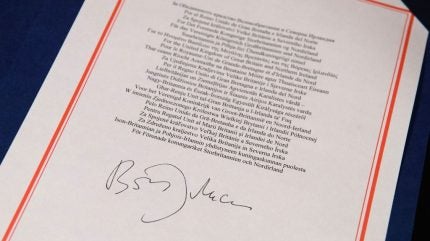 За Обединеното кралство Великобритания и Северна Ирландия
Por el Reino Unido de Gran Bretaña e Irlanda del Norte
Za Spojené království Velké Británie a Severního Irska
For Det Forenede Kongerige Storbritannien og Nordirland
Für das Vereinigte Königreich Großbritannien und Nordirland
Suurbritannia ja Põhja-Iiri Ühendkuningriigi nimel
Για το Ηνωμένο Βασίλειο της Μεγάλης Βρετανίας και της Βόρειας Ιρλανδίας
For the United Kingdom of Great Britain and Northern Ireland
Pour le Royaume-Uni de Grande-Bretagne et d'Irlande du Nord
Thar ceann Ríocht Aontaithe na Breataine Móire agus Thuaisceart Éireann
Za Ujedinjenu Kraljevinu Velike Britanije i Sjeverne Irske
Per il Regno Unito di Gran Bretagna e Irlanda del Nord
Lielbritānijas un Ziemeļīrijas Apvienotās Karalistes vārdā –
Jungtinės Didžiosios Britanijos ir Šiaurės Airijos Karalystės vardu
Nagy-Britannia és Észak-Írország Egyesült Királysága részéről
Għar-Renju Unit tal-Gran Brittanja u l-Irlanda ta' Fuq
Voor het Verenigd Koninkrijk van Groot-Brittannië en Noord-Ierland
W imieniu Zjednoczonego Królestwa Wielkiej Brytanii i Irlandii Północnej
Pelo Reino Unido da Grã-Bretanha e da Irlanda do Norte
Pentru Regatul Unit al Marii Britanii și Irlandei de Nord
Za Spojené kráľovstvo Veľkej Británie a Severného Írska
Za Združeno kraljestvo Velika Britanija in Severna Irska
Ison-Britannian ja Pohjois-Irlannin yhdistyneen kuningaskunnan puolesta
För Förenade konungariket Storbritannien och Nordirland